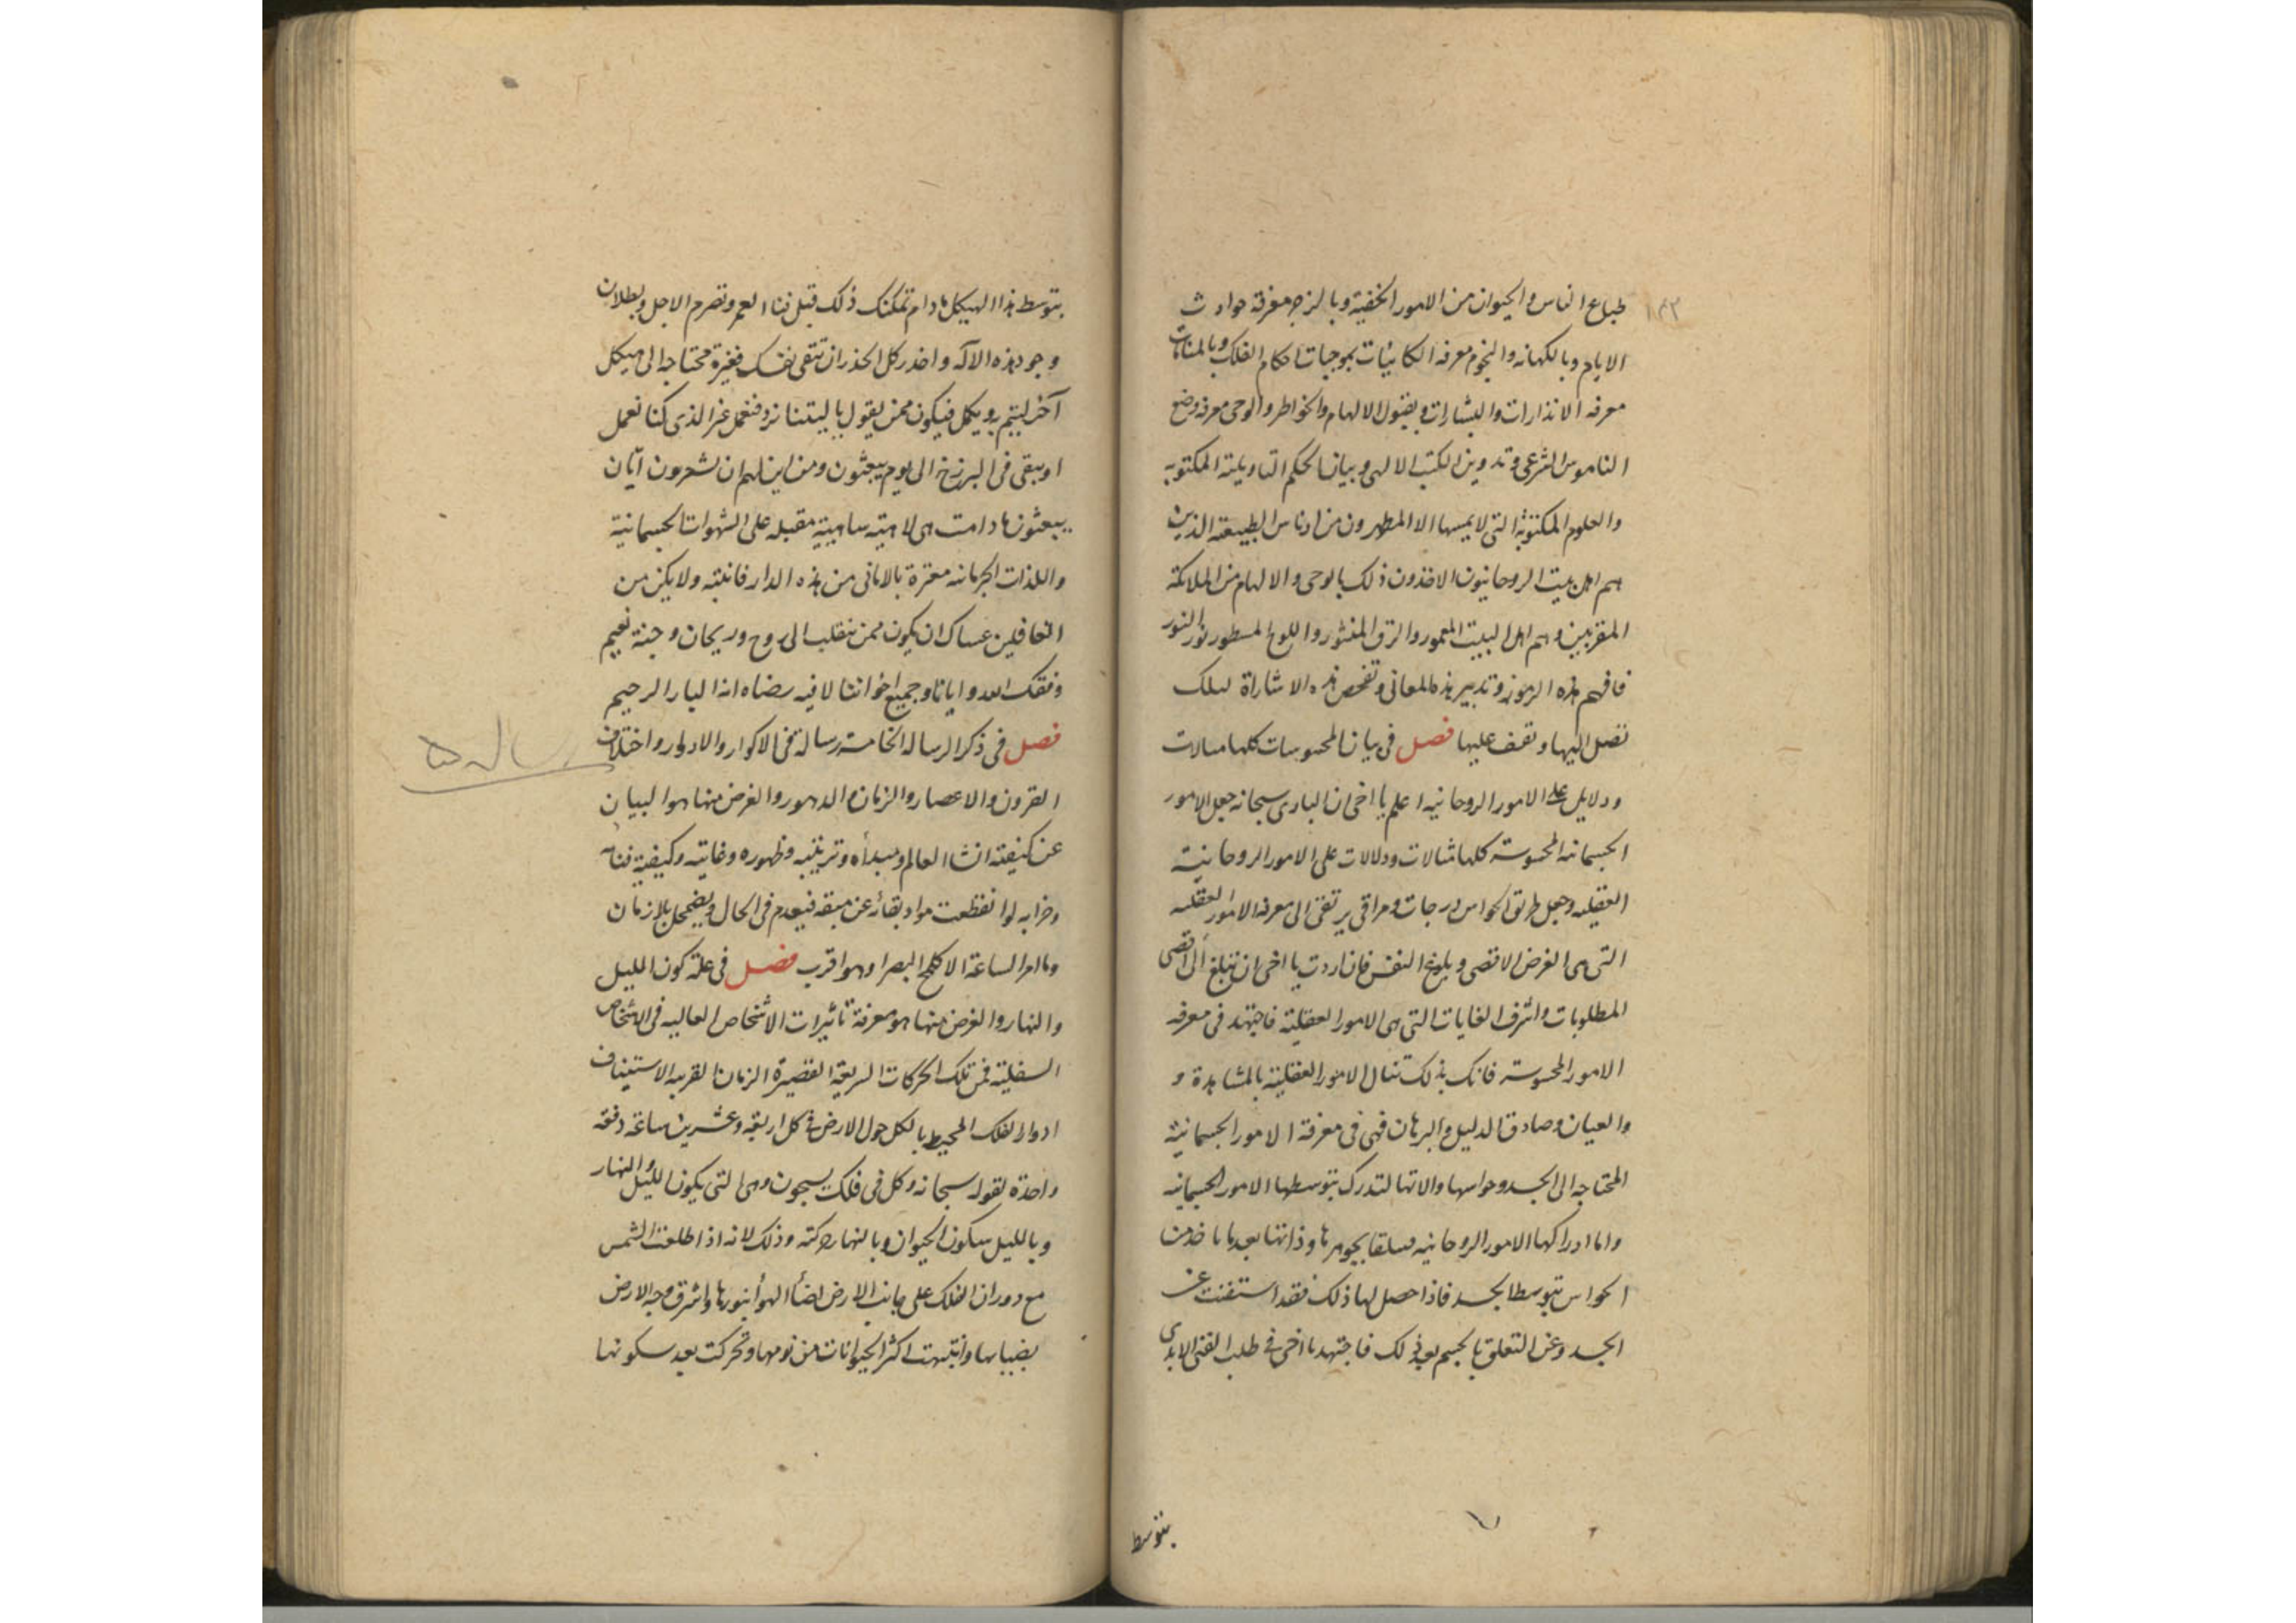 ١٤٣
طباع الناس والحيوان من الامور الخفية وبالزجر معرفة حوادث
الايام وبالكهانه والنجوم معرفه الكائنات بموجبات احكام الفلك وبالمنامات
معرفه الانذارات والبشارات وبقبول الالهام والخواطر والوحى معرفه وضع
الناموس الشرعى وتدوين الكتب الالهى وبيان الحكم التاويلية المكتوبه
والعلوم المكنونة التى لا يمسها الا المطهرون من ادناس الطبيعة الذين
هم اهل بيت الروحانيون الاخذون ذلك بالوحى والالهام من الملائكة
المقربين وهم اهل البيت المعمور والرق المنشور واللوح المسطور نور النور
فافهم هذه الرموز وتدبير هذه المعانى وتفحص هذه الاشاراة لعلك
تصل اليها وتقف عليها فصل فى بيان المحسوسات كلها مثالات
ودلايل على الامور الروحانيه اعلم يا اخى ان البارى سبحانه جعل الامور
الجسمانيه المحسوسة كلها مثالات ودلالات على الامور الروحانية
العقليه وجعل طريق الحواس درجات ومراقى يرتقى الى معرفه الامور العقليه
التى هى الغرض الاقصى وبلوغ النفس فان اردت يا اخى ان تبلغ الى اقصى
المطلوبات واشرف الغايات التى هى الامور العقلية فاجتهد فى معرفه
الامور المحسوسة فانك بذلك تنال الامور العقلية بالمشاهدة و
والعيان وصادق الدليل والبرهان فهى فى معرفة الامور الجسمانية
المحتاجه الى الجسد وحواسها والاتها لتدرك بتوسطها الامور الجسمانيه
واما ادراكها الامور الروحانيه بجوهرها وذاتها بعد ما باخذها
الحواس بتوسط الجسد فاذا حصل لها ذلك فقد استغنت عن
الجسد وعن التعلق بالجسم بعد ذلك فاجتهد يا اخى فى طلب الغنى الابدى
بتوسط
بتوسط هذا الهيكل مادام تمكنك ذلك قبل فنا العمر وتصرم الاجل وبطلان
وجود هذه الاله واحذر كل الحذر ان تبقى نفسك فقيرة محتاجه الى هيكل
آخر ليتم به ويكمل فيكون ممن يقول ياليتنا نرد فنعمل غير الذى كنا نعمل
او يبقى فى البرزخ الى يوم يبعثون ومن اين لهم ان يشعرون آيان
يبعثون مادامت هى لاهية ساهية مقبله على الشهوات الجسمانية
واللذات الجرمانيه مغترة بالامانى من هذه الدار فانتبه ولا يكن من
الغافلين عساك ان يكون ممن ينقلب الى روح وريحان وجنة نعيم
وفقك الله وايانا وجميع اخواننا لما فيه رضاه انه البار الرحيم
فصل فى ذكر الرساله الخامسة رسالة فى الاكوار والادوار واختلاف
رساله ٥
القرون والاعصار والزمان والدهور والغرض منها هو البيان
عن كيفيته انشا العالم ومبدأه وترتيبه وظهوره وغايته وكيفية فنائه
وخرابه لو انقطعت مواد بقائه عن مبقيه فيعدم فى الحال ويضمحل بلا زمان
وما امر الساعة الا كلمح البصر او هو اقرب فصل فى علة كون الليل
والنهار والغرض منها هو معرفة تاثيرات الاشخاص العاليه فى الاشخاص
السفلية فمن تلك الحركات السريعة القصيرة الزمان القريبه الاستيناف
ادوار الفلك المحيط بالكل حول الارض فى كل اربعة وعشرين ساعة دفعه
واحدة لقوله سبحانه وكل فى فلك يسبحون وهى التى يكون الليل والنهار
وبالليل سكون الحيوان وبالنهار حركته وذلك لانه اذا طلعت الشمس
مع دوران الفلك على جانب الارض اضاء الهواء بنورها واشرق وجه الارض
بضيائها وانتبهت اكثر الحيوانات من نومها وتحركت بعد سكونها